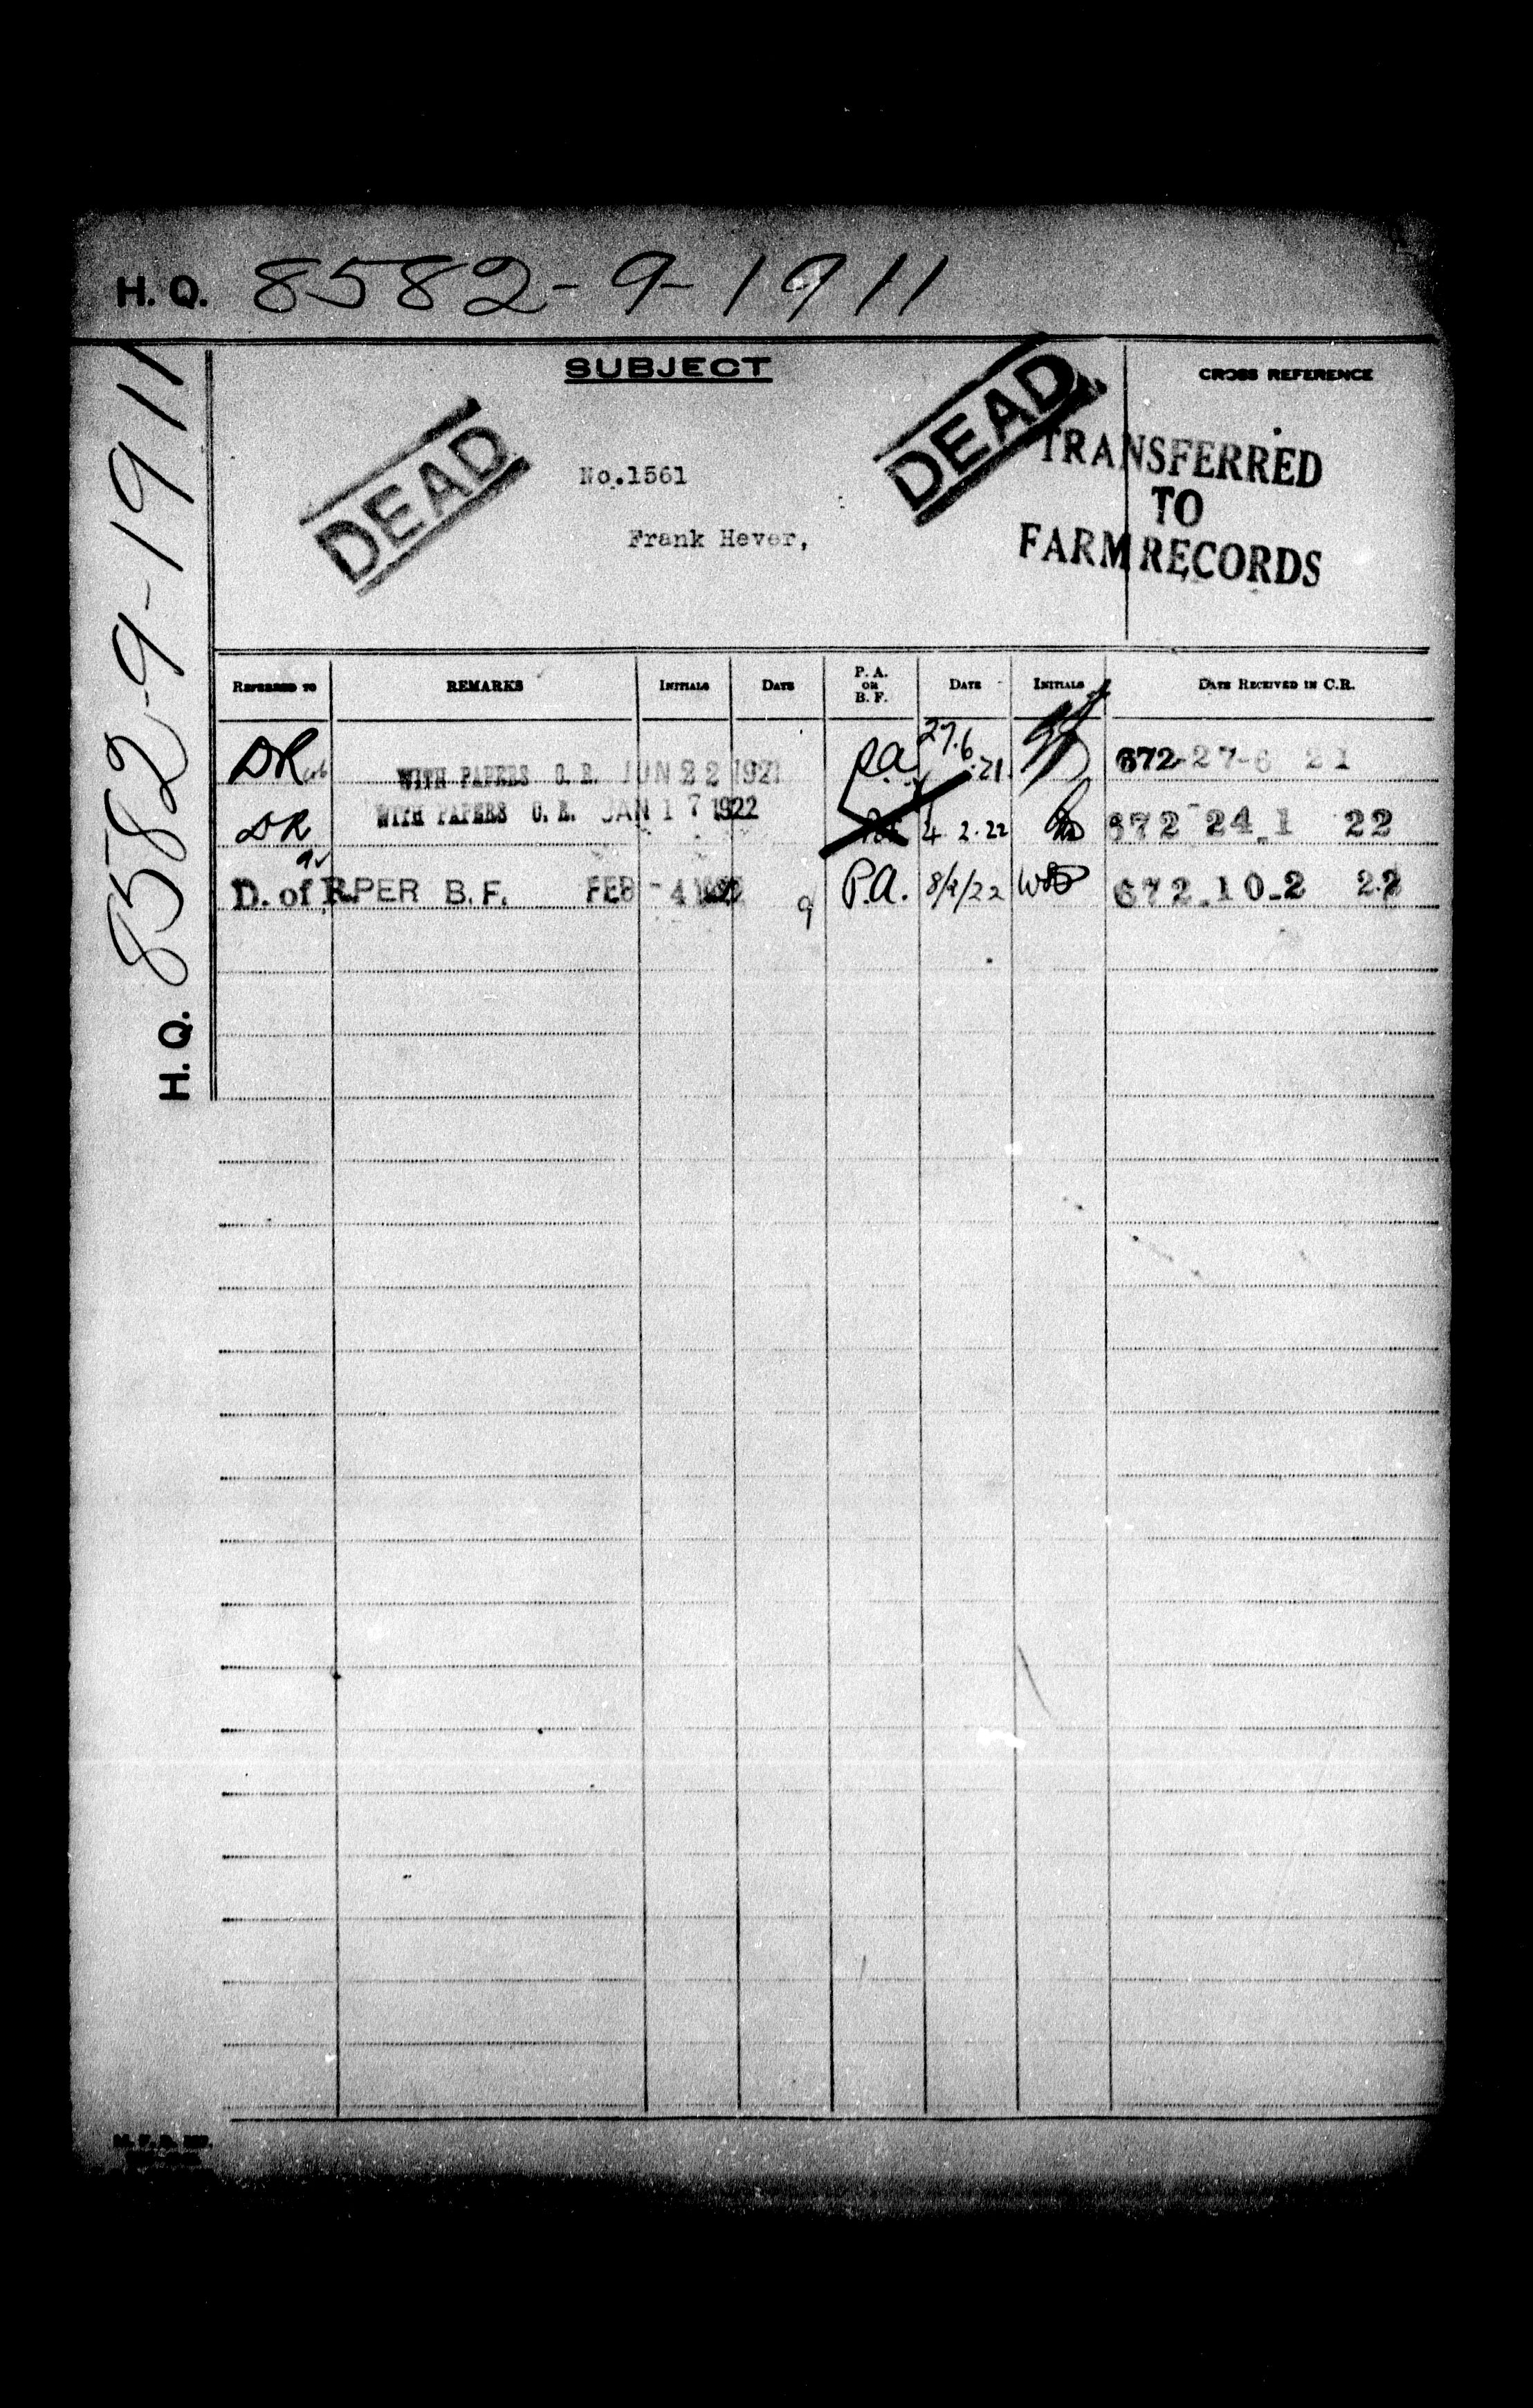 H. Q. 8582-9-1911
H. Q. 8582-9-1911
SUBJECT
CROSS REFERENCE
DEAD
DEAD
TRANSFERRED
TO
FARM RECORDS
No.1561
Frank Hever,
REFERRED TO REMARKS INITIALS DATE P. A. OR B. F. DATE INITIALS DATE RECEIVED IN C.R.
DR WITH PAPERS O. E. JUN 22 1921 P.A 27.6.21 672-27-6 21
DR WITH PAPERS O. E. JAN 17 1922 4 2.22 672 24-1 22
D. of R. PER B. F. FEB - 4 1922 9 P.A. 8/2/22 672-10-2 22